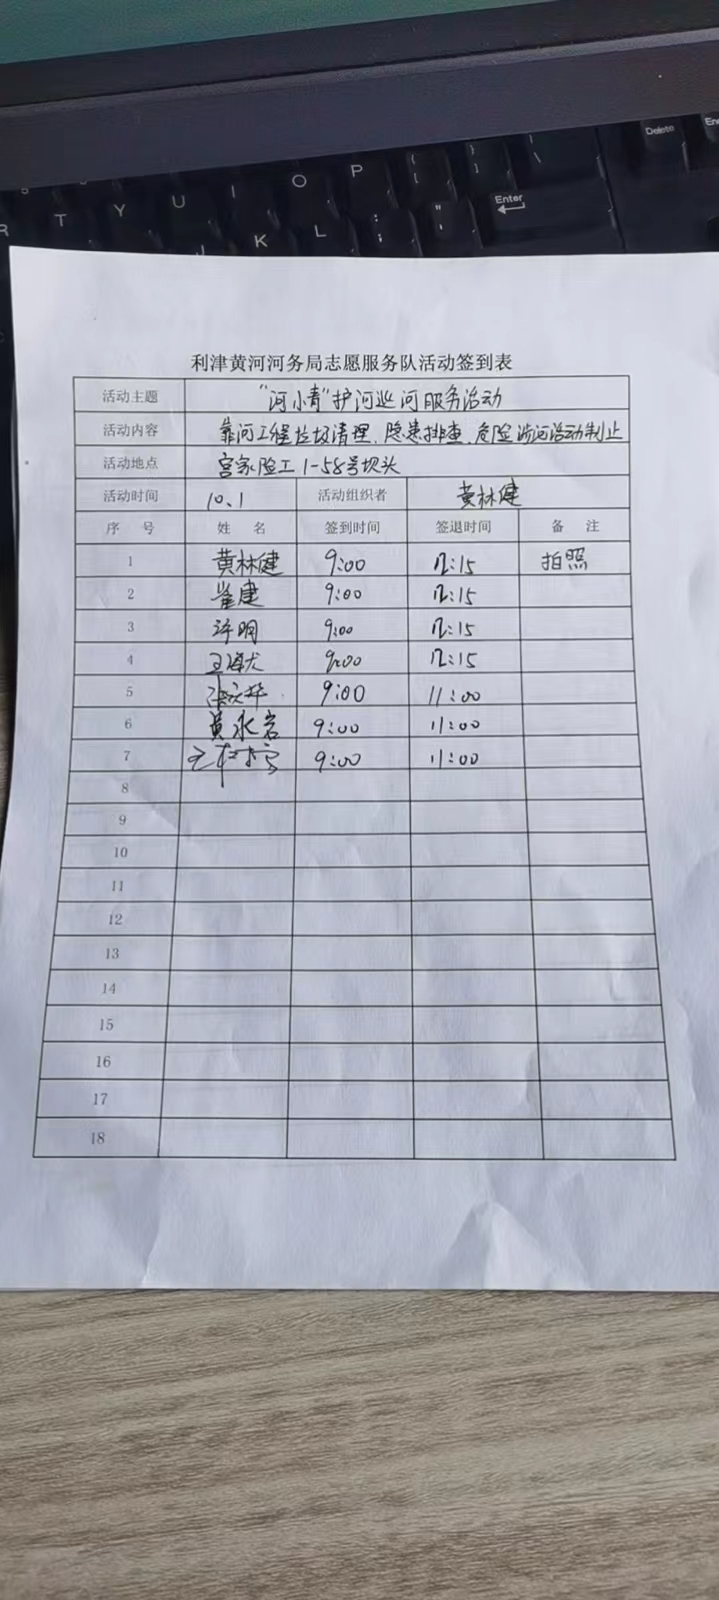 Delete
T Y U I O P
Enter
K L
利津黄河河务局志愿服务队活动签到表
活动主题 "河小青"护河巡河服务活动
活动内容 靠河工程垃圾清理、隐患排查、危险涉河活动制止
活动地点 宫家险工1-58号坝头
活动时间 10.1 活动组织者 黄林健
序 号 姓 名 签到时间 签退时间 备 注
1 黄林健 9:00 12:15 拍照
2 崔建 9:00 12:15
3 许明 9:00 12:15
4 9:00 12:15
5 9:00 11:00
6 黄永岩 9:00 11:00
7 9:00 11:00
8
9
10
11
12
13
14
15
16
17
18